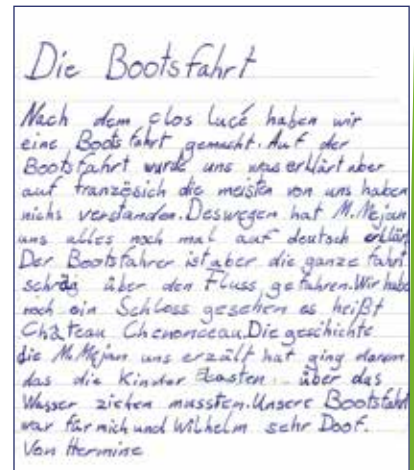 Die Bootsfahrt
Nach dem clos lucé haben wir
eine Boots fahrt gemacht. Auf der
Bootsfahrt wurde uns was erklärt aber
auf französich die meisten von uns haben
nichs verstanden. Deswegen hat M. Mejan
uns alles noch mal auf deutsch erklärt
Der Bootsfahrer ist aber die ganze fahrt
schräg über den Fluss gefahren. Wir habe
noch ein Schloss gesehen es heißt
Château Chenonceau. Die geschichte
die M. Mejan uns erzält hat ging darum
das die Kinder Lasten über das
Wasser ziehen mussten. Unsere Bootsfahrt
war für mich und Wilhelm sehr Doof.
Von Hermine